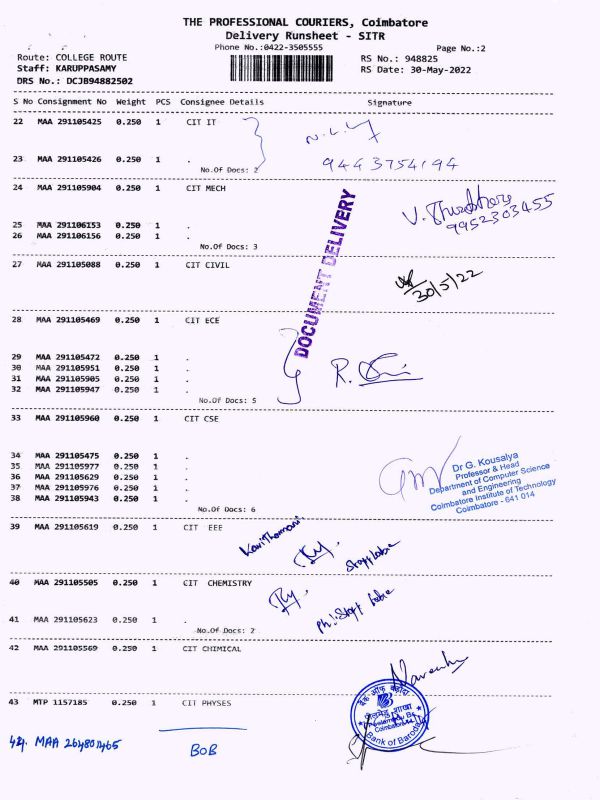 THE PROFESSIONAL COURIERS, Coimbatore
Delivery Runsheet - SITR
Phone No.:0422-3505555 Page No.:2
Route: COLLEGE ROUTE RS No.: 948825
Staff: KARUPPASAMY RS Date: 30-May-2022
DRS No.: DCJB94882502
S No Consignment No Weight PCS Consignee Details Signature
22 MAA 291105425 0.250 1 CIT IT
23 MAA 291105426 0.250 1 . 9443754194
No.Of Docs: 2
24 MAA 291105904 0.250 1 CIT MECH
9952303455
25 MAA 291106153 0.250 1 .
26 MAA 291106156 0.250 1 .
No.Of Docs: 3
DOCUMENT DELIVERY
27 MAA 291105088 0.250 1 CIT CIVIL
30/5/22
28 MAA 291105469 0.250 1 CIT ECE
29 MAA 291105472 0.250 1 .
30 MAA 291105951 0.250 1 .
31 MAA 291105905 0.250 1 .
32 MAA 291105947 0.250 1 .
No.Of Docs: 5
33 MAA 291105960 0.250 1 CIT CSE
34 MAA 291105475 0.250 1 .
35 MAA 291105977 0.250 1 .
36 MAA 291105629 0.250 1 .
37 MAA 291105976 0.250 1 .
38 MAA 291105943 0.250 1 .
No.Of Docs: 6
Dr G. Kousalya
Professor & Head
Department of Computer Science
and Engineering
Coimbatore Institute of Technology
Coimbatore - 641 014
39 MAA 291105619 0.250 1 CIT EEE
40 MAA 291105505 0.250 1 CIT CHEMISTRY
41 MAA 291105623 0.250 1 .
No.Of Docs: 2
42 MAA 291105569 0.250 1 CIT CHIMICAL
43 MTP 1157185 0.250 1 CIT PHYSES
बैंक ऑफ़ बड़ौदा
शाखा
Bank of Baroda
44. MAA 264801465 BOB